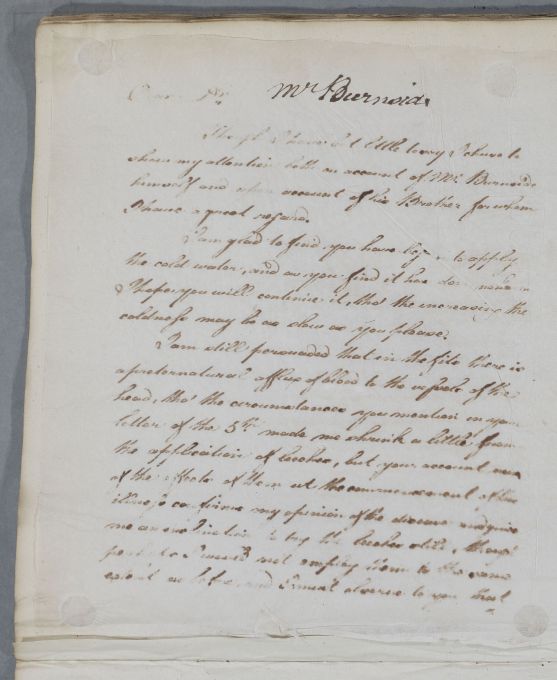 Dear Sir Mr Burnside.
Though I have but little to say I chuse to
shew my attention both on account of Mr. Burnside
himself and upon account of his Brother for whom
I have a great regard.
I am glad to find you have begun to apply
the cold water, and as you find it has done no harm
I hope you will continue it, tho' the increasing the
coldness may be as slow as you please.
I am still persuaded that in the fits there is
a preternatural afflux of blood to the vessels of the
head, tho' the circumstances you mention in your
letter of the 5th made me shrink a little from
the application of leeches, but your account now
of the effects of them at the commencement of the
illness confirms my opinion of the disease and gives
me an inclination to try the leeches still, though
perhaps I would not employ them to the same
extent as before, and I must observe to you that